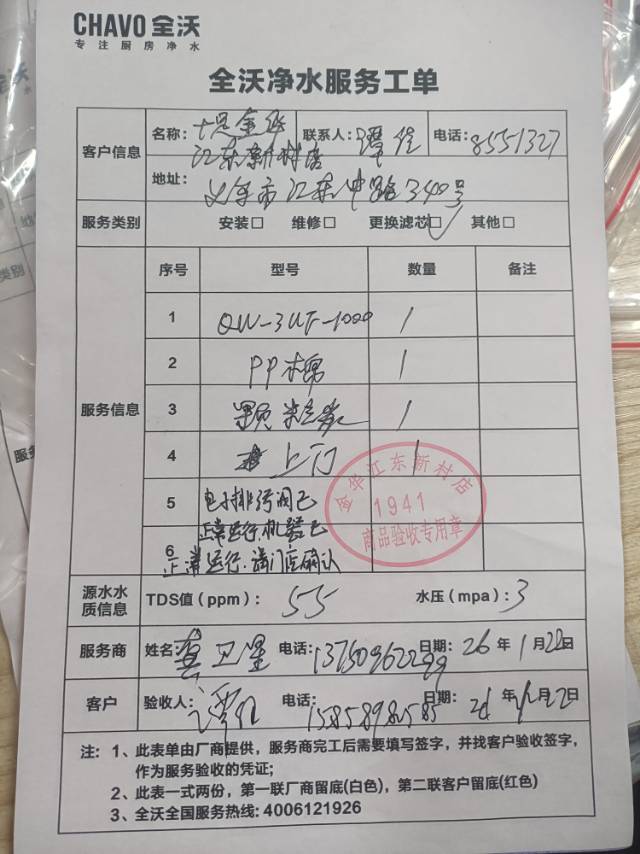 CHAVO 全沃
专注厨房净水
全沃净水服务工单
客户信息
名称: 金华
江东新村店
联系人: 电话: 8551327
地址: 义乌市江东中路340号
服务类别 安装□ 维修□ 更换滤芯☑ 其他□
服务信息
序号 型号 数量 备注
1 QW-3UF-1000 1
2 PP棉 1
3 颗粒炭 1
4 上门 1
5 电子排污阀已
正常运行.机器已
6 正常运行.请门店确认
金华江东新村店
1941
商品验收专用章
源水水质信息 TDS值(ppm): 55 水压(mpa): 3
服务商 姓名 卫星 电话: 13750962299 日期: 26年1月22日
客户 验收人: 电话: 日期: 26年1月22日
注: 1、此表单由厂商提供,服务商完工后需要填写签字,并找客户验收签字,
作为服务验收的凭证;
2、此表一式两份,第一联厂商留底(白色),第二联客户留底(红色)
3、全沃全国服务热线: 4006121926